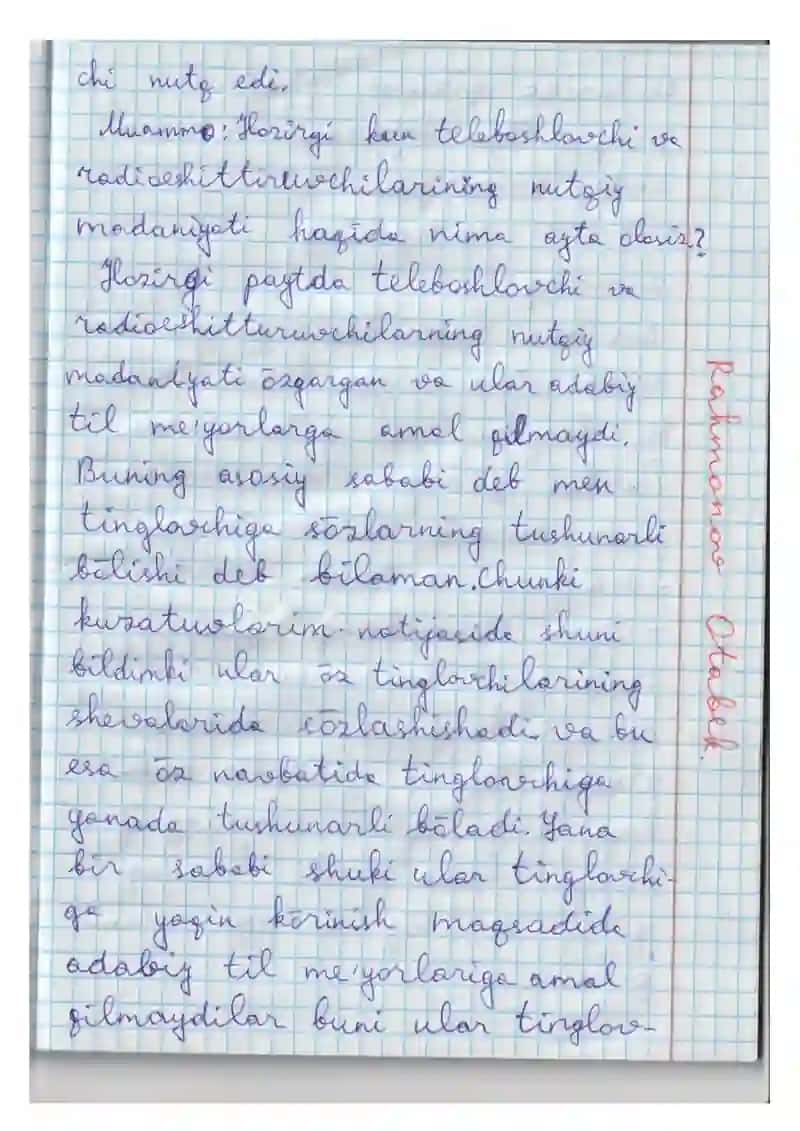 chi nutq edi.
Muammo: Hozirgi kun teleboshlovchi va
radioeshittiruvchilarining nutqiy
madaniyati haqida nima ayta olasiz?
Hozirgi paytda teleboshlovchi va
radioeshitturuvchilarning nutqiy
madaniyati ōzgargan va ular adabiy
til me'yorlarga amal qilmaydi.
Buning asosiy sababi deb men
tinglovchiga sōzlarning tushunarli
bōlishi deb bilaman. Chunki
kuzatuvlarim natijasida shuni
bildimki ular ōz tinglovchilarining
shevalarida sōzlashishadi va bu
esa ōz navbatida tinglovchiga
yanada tushunarli bōladi. Yana
bir sababi shuki ular tinglovchi-
ga yaqin kōrinish maqsadida
adabiy til me'yorlariga amal
qilmaydilar buni ular tinglov-
Rahmonov Otabek.